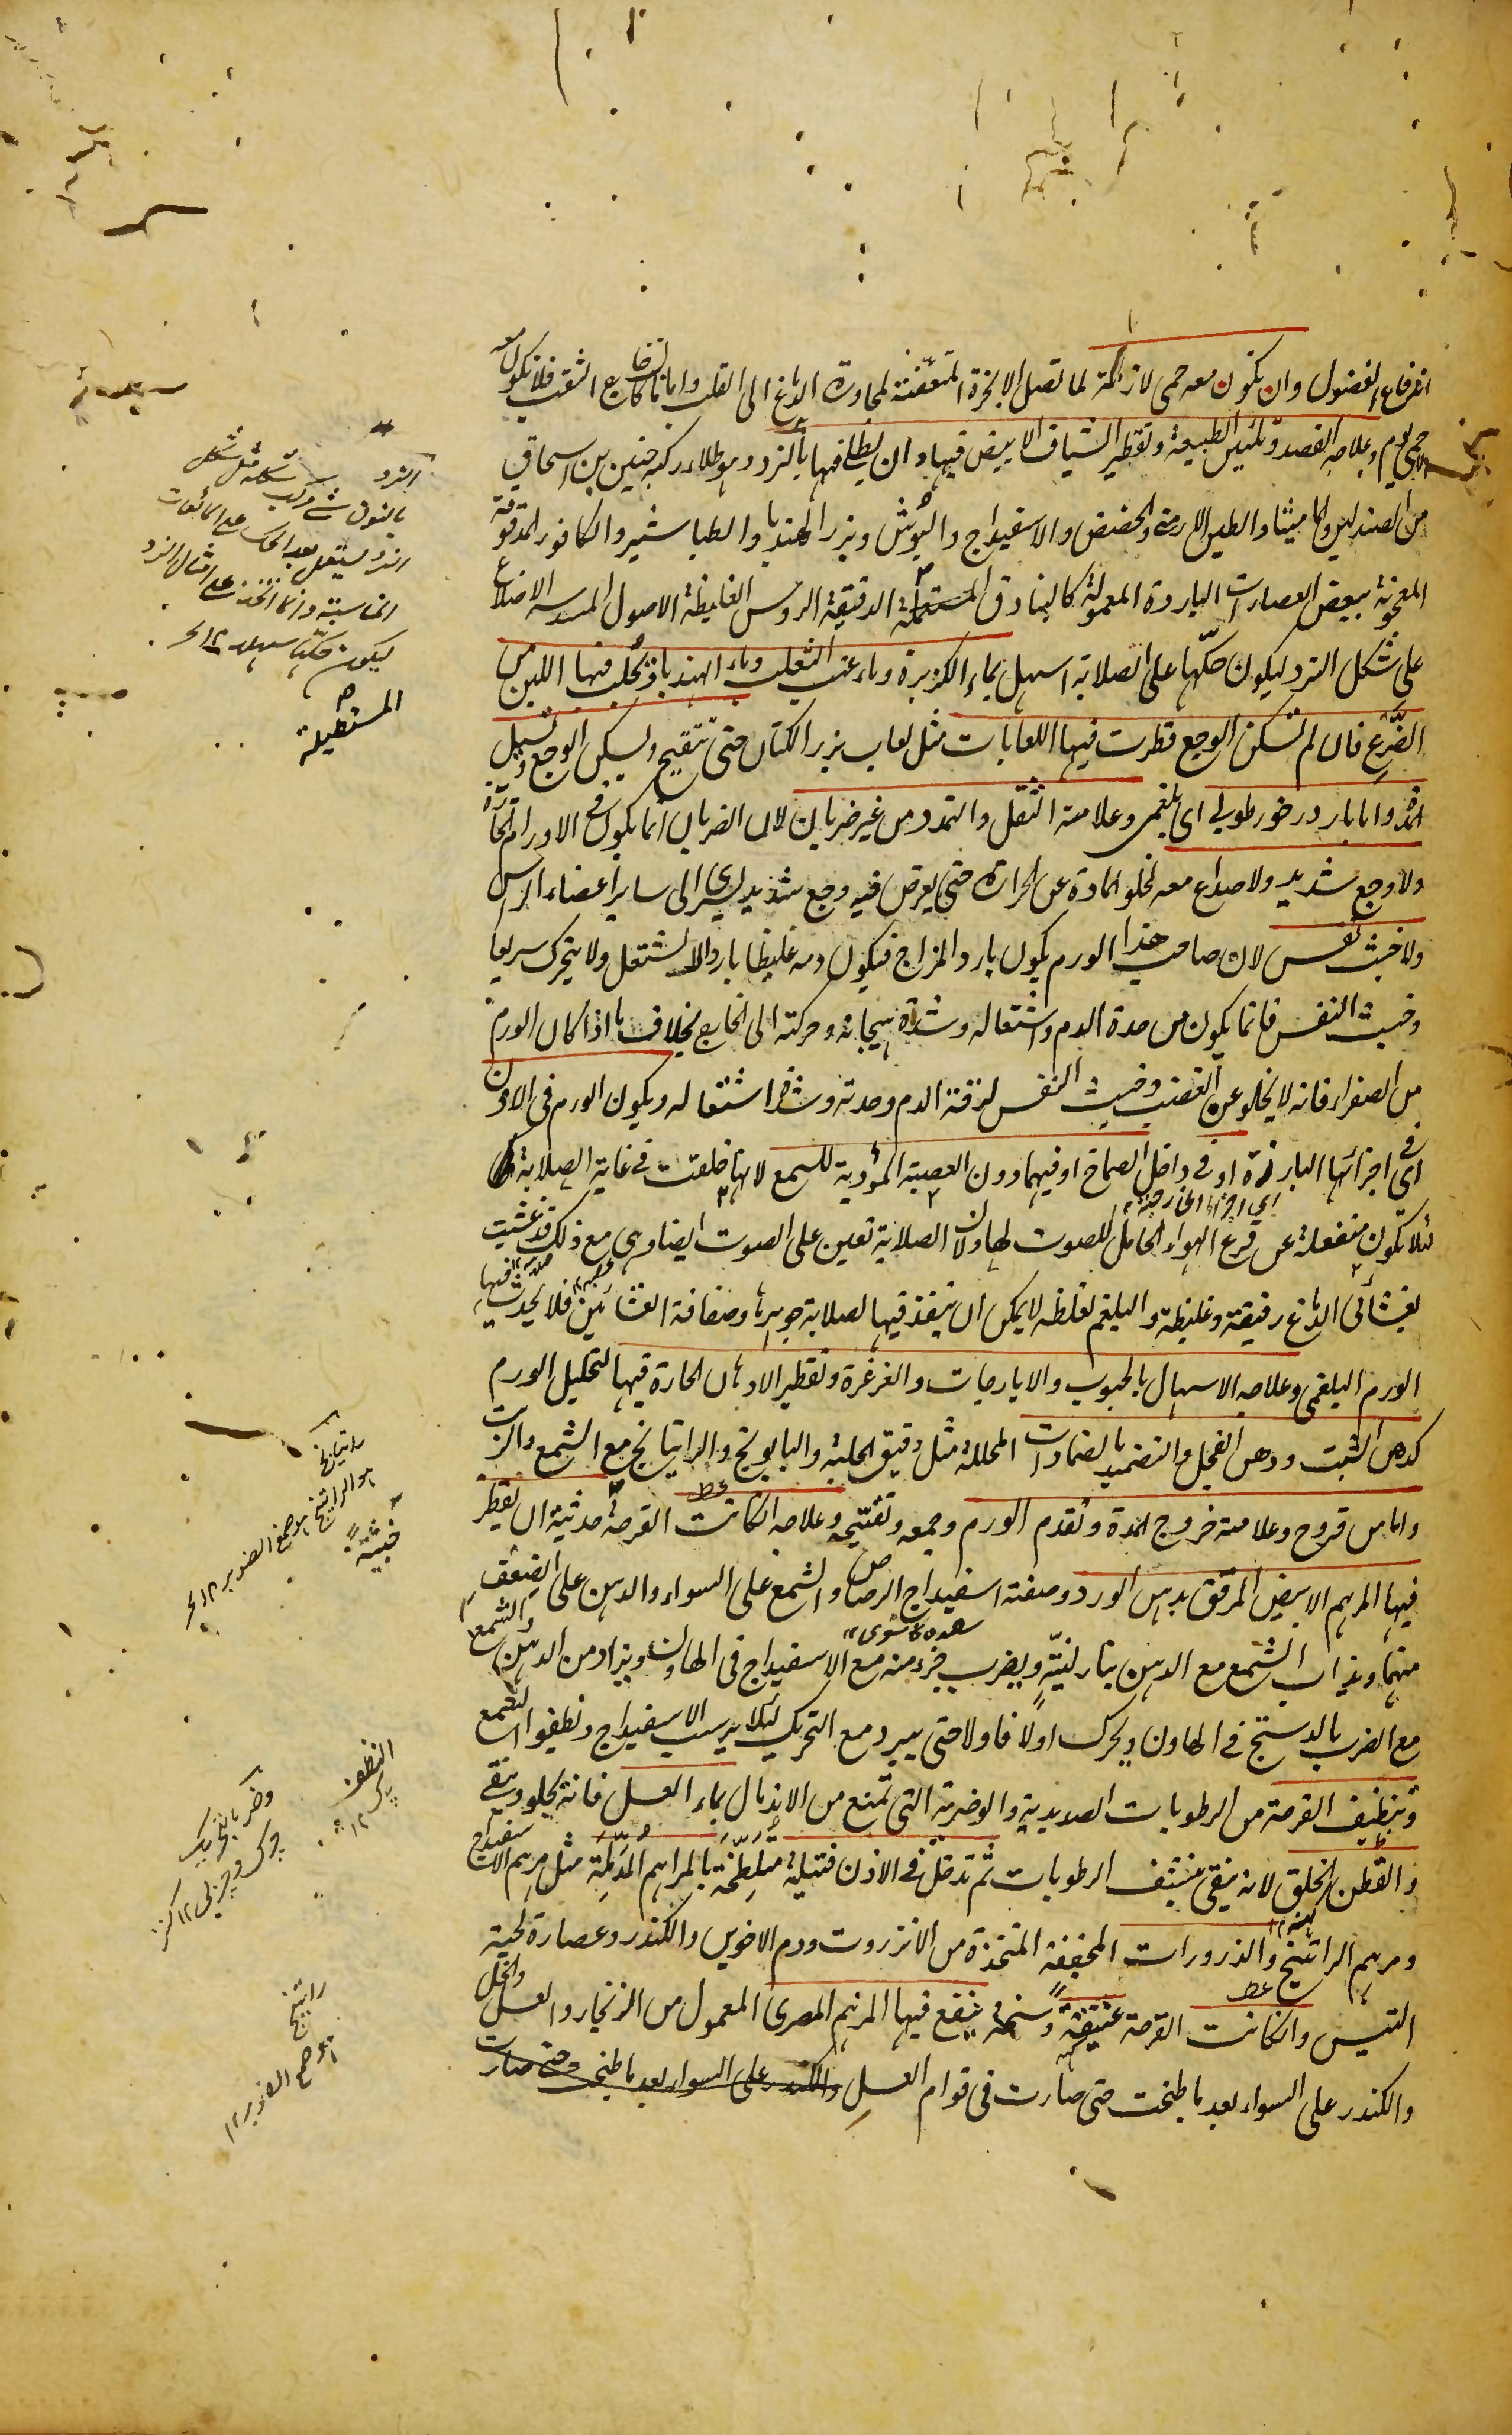 اندفاع الفضول وان تكون معه حمى لازمة لما تصل الابخرة المتعفنة لمجاورة الدماغ الى القلب واما ما كان خارج الثقب فلا تكون معه
الا حمى يوم وعلاجه الفصد وتليين الطبيعة وتقطير الشياف الابيض فيها وان يطلى فيها بالنرد وهو طلاء ركبه حنين بن اسحاق
من الصندلين والماميثا والطين الارمنى والحضض والاسفيداج والبوش وبزر الهندبا والطباشير والكافور المدقوقة
المعجونة ببعض العصارات الباردة المعمولة كالبنادق المستطيلة الدقيقة الروس الغليظة الاصول المسدسة الاضلاع
على شكل النرد ليكون حكّها على الصلابة اسهل بماء الكزبرة وماء عنب الثعلب وماء الهندبا ويحلب فيها اللبن من
الضرع فان لم تسكن الوجع قطرت فيها اللعابات مثل لعاب بزر الكتان حتى تتقيح ويسكن الوجع وتسيل
المدة واما بارد رخو رطوبى اى بلغمى وعلامته الثقل والتمدد من غير ضربان لان الضربان انما يكون فى الاورام الحارة
ولا وجع شديد ولا صداع معه لخلو المادة عن الحرارة حتى يعرض فيه وجع شديد يسرى الى ساير اعضاء الراس
ولا خبث نفس لان صاحب هذا الورم يكون بارد المزاج فيكون دمه غليظا باردا لا يشتعل ولا يتحرك سريعا
وخبث النفس فانما يكون من حدة الدم واشتعاله وشدة هيجانه وحركته الى الخارج بخلاف ما اذا كان الورم
من الصفراء فانه لا يخلو عن الغضب وخبث النفس لرقة الدم وحدته وشدة اشتعاله ويكون الورم فى الاذن
اى فى اجزائها البارزة او فى داخل الصماخ او فيهما دون العصبة المؤدية للسمع لانها خلقت فى غاية الصلابة
اى اجزائها الخارجة
لئلا تكون منفعلة عن قرع الهواء الحامل للصوت لها ولان الصلابة تعين على الصوت ايضا وهى مع ذلك قد غشيت
بغشائى الدماغ رقيقة وغليظة والبلغم لغلظه لا يمكن ان ينفذ فيها لصلابة جوهرها وصفاقة الغشائين فلا يحدث فيها
الورم البلغمى وعلاجه الاسهال بالحبوب والايارجات والغرغرة وتقطير الادهان الحارة فيها لتحليل الورم
كدهن الشبت ودهن الفجل والتضميد بالضمادات المحللة مثل دقيق الحلبة والبابونج والراتيانج مع الشمع والزيت
واما من قروح وعلامته خروج المدة وتقدم الورم وجمعه وتفتيحه وعلاجه ان كانت القرحة حديثة ان يقطر
فيها المرهم الابيض المرقق بدهن الورد وصفته اسفيداج الرصاص والشمع على السواء والدهن على الضعف
منهما ويذاب الشمع مع الدهن بنار لينة ويضرب جزء منه مع الاسفيداج فى الهاون ويزاد من الدهن والشمع
مع الضرب بالدستج فى الهاون ويحرك اولا فاولا حتى يبرد مع التحريك لئلا يرسب الاسفيداج وتطفو الشمع
وتنظيف القرحة من الرطوبات الصديدية والوضرية التى تمنع من الاندمال بماء العسل فانه يجلو وينقى
والقطن الخلق لانه ينقى وينشف الرطوبات ثم تدخل فى الاذن فتيلة متلطخة بالمراهم المدملة مثل مرهم الاسفيداج
ومرهم الراتينج والذرورات المجففة المتخذة من الانزروت ودم الاخوين والكندر وعصارة لحية
التيس وان كانت القرحة عتيقة وسخة ينفع فيها المرهم المصرى المعمول من الزنجار والعسل والخل
والكندر على السواء بعد ما طبخت حتى صارت فى قوام العسل والكندر على السواء بعد ما طبخت حتى صارت
النرد
المستطيلة
راتيانج
هو الراتينج هو صمغ الصنوبر ١٢ بحر
وضر بالتحريك
چرك و چربى ١٢ كنز
راتينج
هو صمغ الصنوبر ١٢